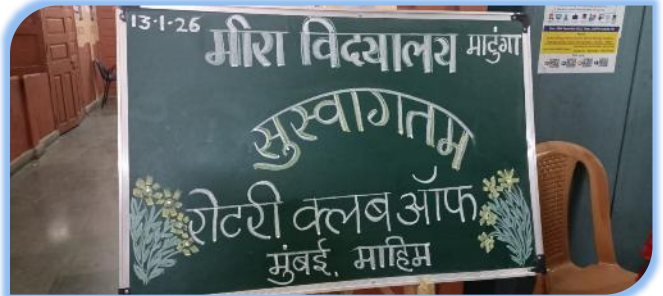 13-1-26
मीरा विद्यालय माटुंगा
सुस्वागतम
रोटरी क्लब ऑफ
मुंबई, माहिम